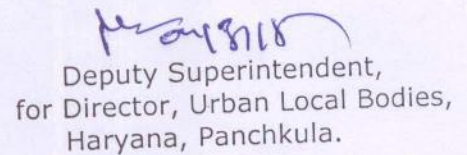 Deputy Superintendent,
for Director, Urban Local Bodies,
Haryana, Panchkula.